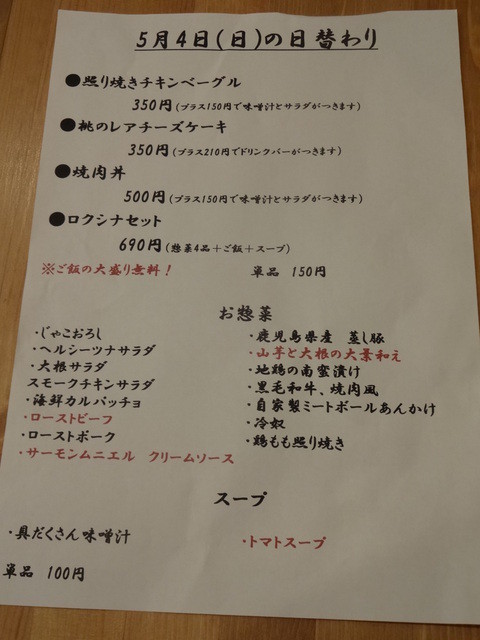 5月4日(日)の日替わり
●照り焼きチキンベーグル
350円(プラス150円で味噌汁とサラダがつきます)
●桃のレアチーズケーキ
350円(プラス210円でドリンクバーがつきます)
●焼肉丼
500円(プラス150円で味噌汁とサラダがつきます)
●ロクシナセット
690円(惣菜4品+ご飯+スープ)
※ご飯の大盛り無料! 単品 150円
お惣菜
・じゃこおろし
・ヘルシーツナサラダ
・大根サラダ
スモークチキンサラダ
・海鮮カルパッチョ
・ローストビーフ
・ローストポーク
・サーモンムニエル クリームソース
・鹿児島県産 蒸し豚
・山芋と大根の大葉和え
・地鶏の南蛮漬け
・黒毛和牛、焼肉風
・自家製ミートボールあんかけ
・冷奴
・鶏もも照り焼き
スープ
・具だくさん味噌汁
・トマトスープ
単品 100円